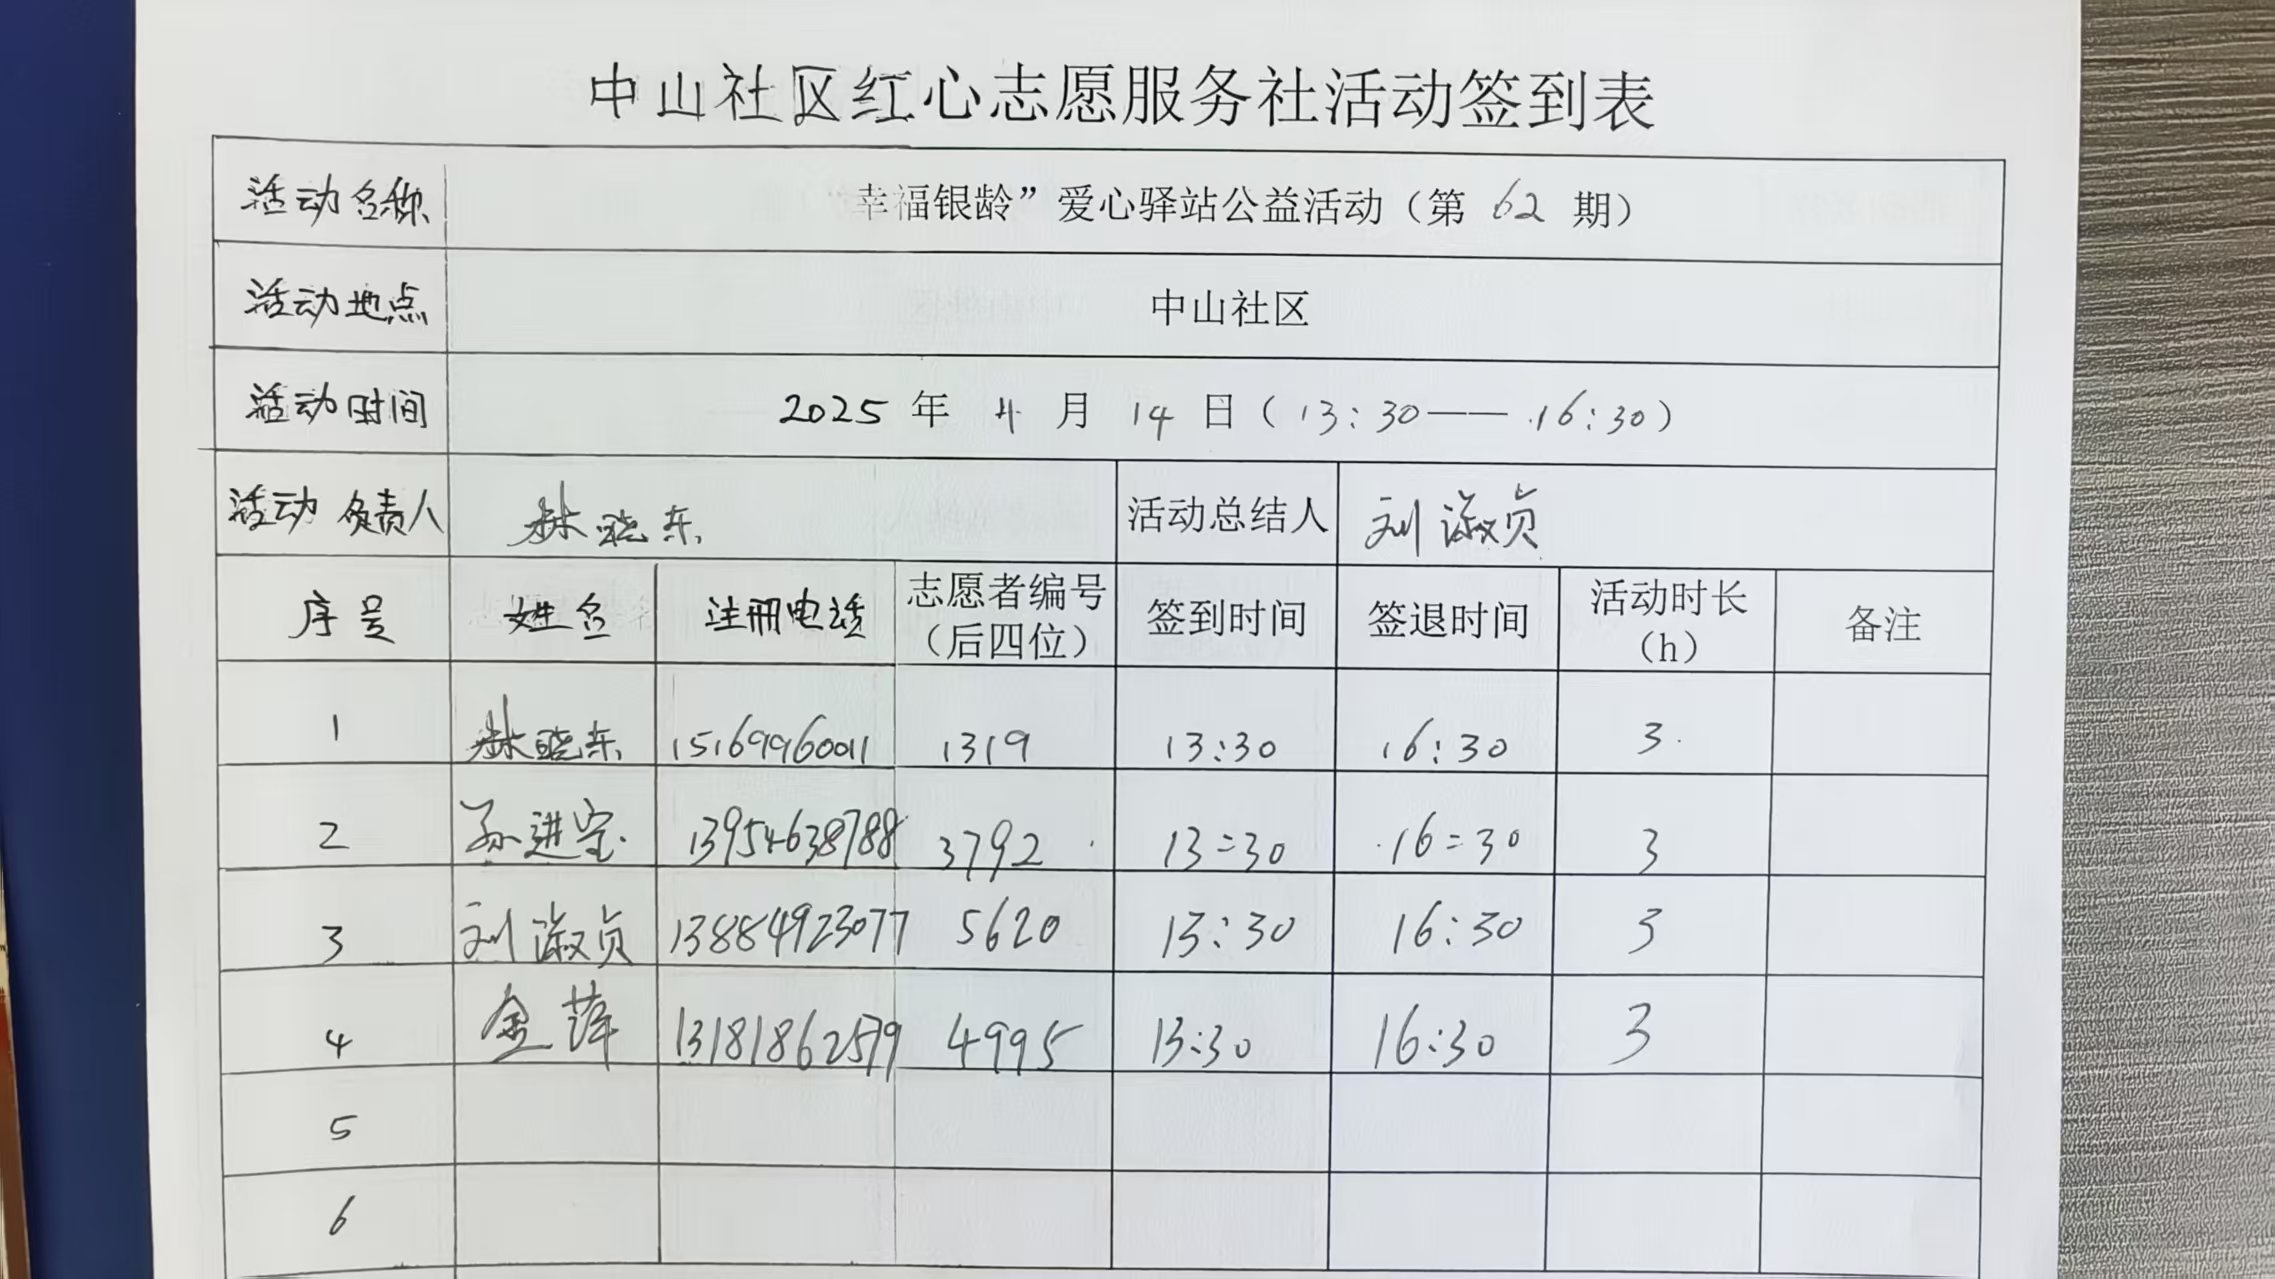 中山社区红心志愿服务社活动签到表
活动名称 幸福银龄”爱心驿站公益活动（第 62 期）
活动地点 中山社区
活动时间 2025 年 4 月 14 日（13:30——16:30）
活动负责人 林晓东 活动总结人 刘淑贞
序号 姓名 注册电话 志愿者编号（后四位） 签到时间 签退时间 活动时长（h） 备注
1 林晓东 15169960011 1319 13:30 16:30 3
2 孙进宝 13954638788 3792 13:30 16:30 3
3 刘淑贞 13884923077 5620 13:30 16:30 3
4 金萍 13181862579 4995 13:30 16:30 3
5
6